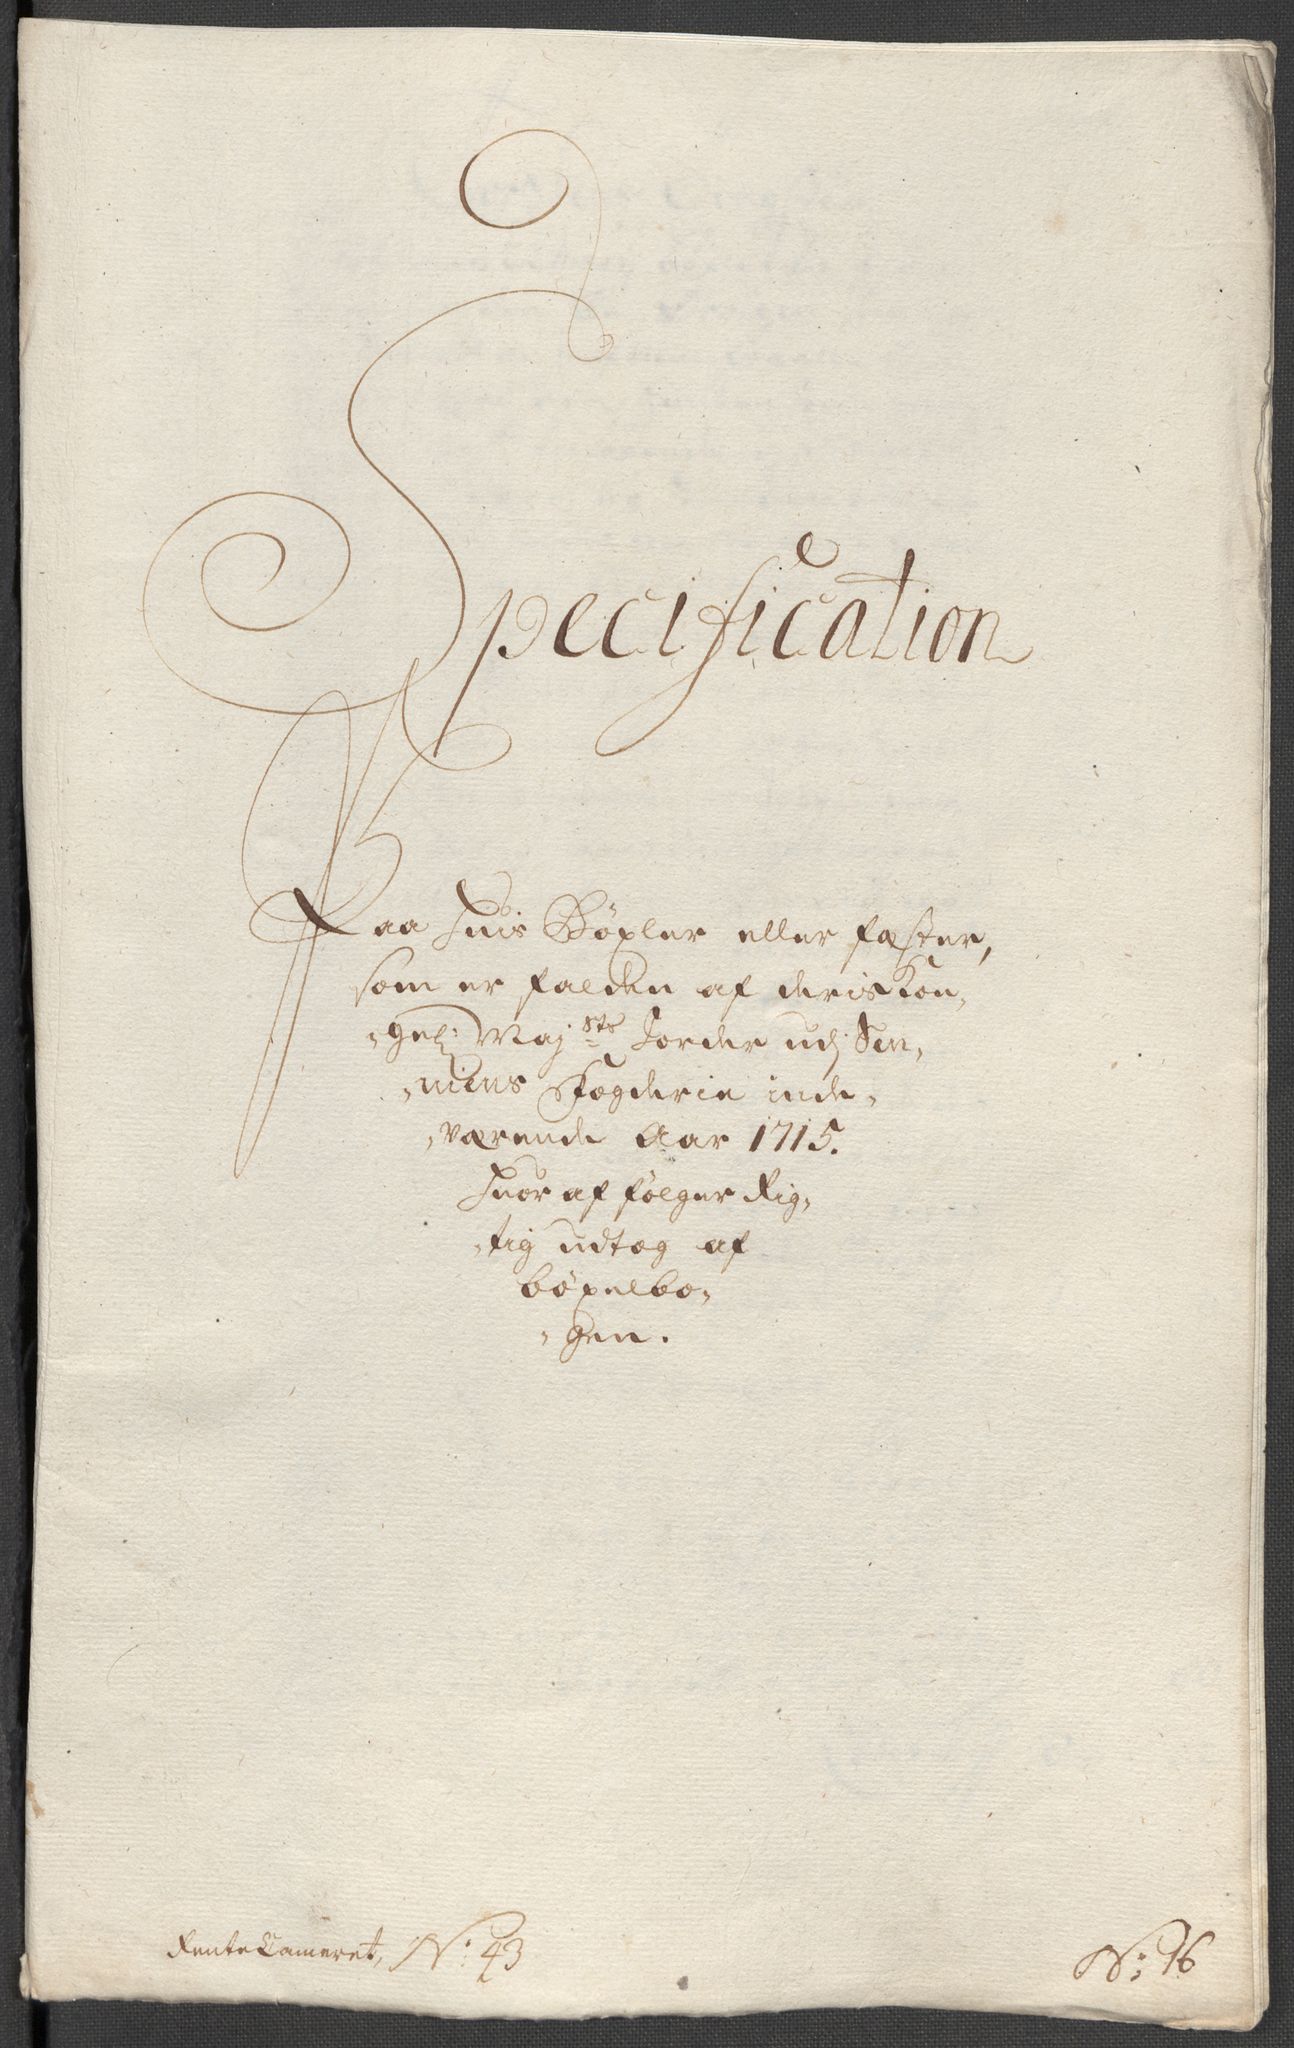 Specification
Paa huis Bøxler eller fæster,
som er falden af deris Kon„
„gel: Maj:sts Jorder udj Sen„
„niens Fogderie inde„
„værende Aar 1715.
huor af følger Rig„
„tig udtog af
bøxelbo„
„gen.
Rente Cameret, No: 43
No: 16